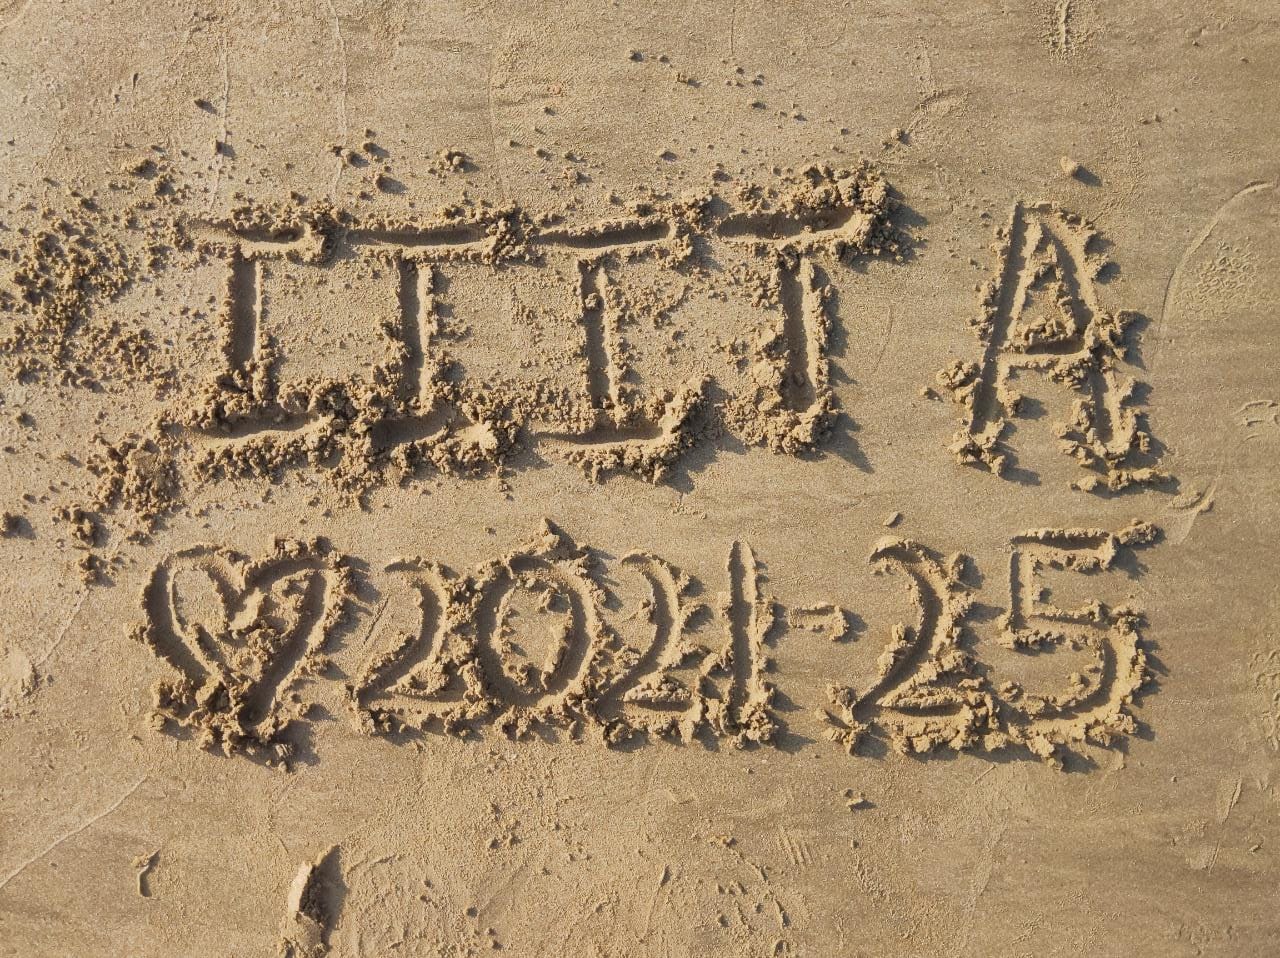 IIIT A
♡2021-25